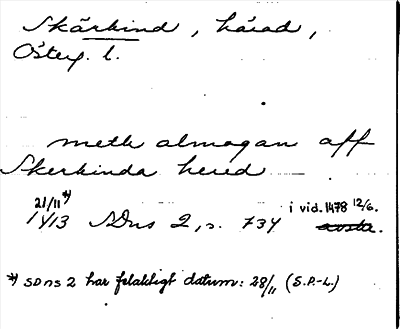 Skärkind, härad,
Österg. l.
meth almogan aff
Skerkinda hered
21/11 *) i vid. 1478 12/6.
1413 SDns 2, s. 734 avskr.
*) SDns 2 har felaktigt datum: 28/11 (S.P.-L.)